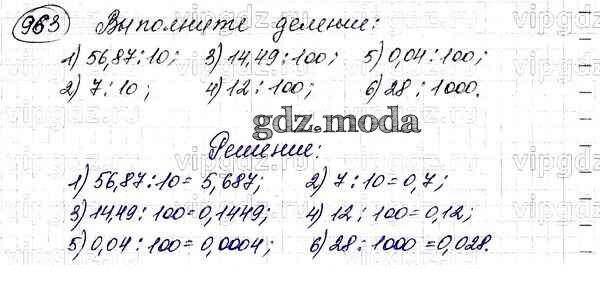 963 Выполните деление:
1) 56,87:10; 3) 14,49:100; 5) 0,04:100;
2) 7:10; 4) 12:100; 6) 28:1000.
gdz.moda
Решение:
1) 56,87:10=5,687; 2) 7:10=0,7;
3) 14,49:100=0,1449; 4) 12:100=0,12;
5) 0,04:100=0,0004; 6) 28:1000=0,028.